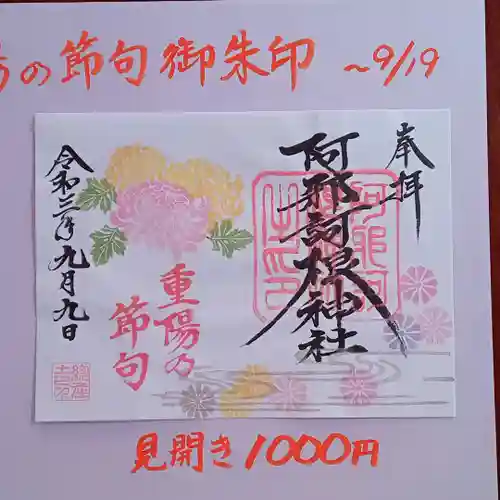 の節句御朱印 ~9/19
奉拝
阿那訶根神社
重陽の
節句
令和三年九月九日
見開き1000円